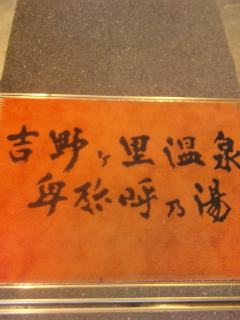 吉野ヶ里温泉
卑弥呼乃湯